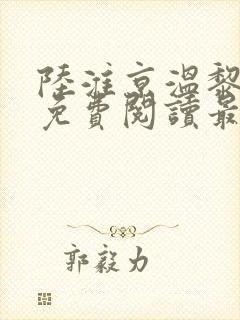 陸淮京溫黎
免費閱讀最
郭毅力